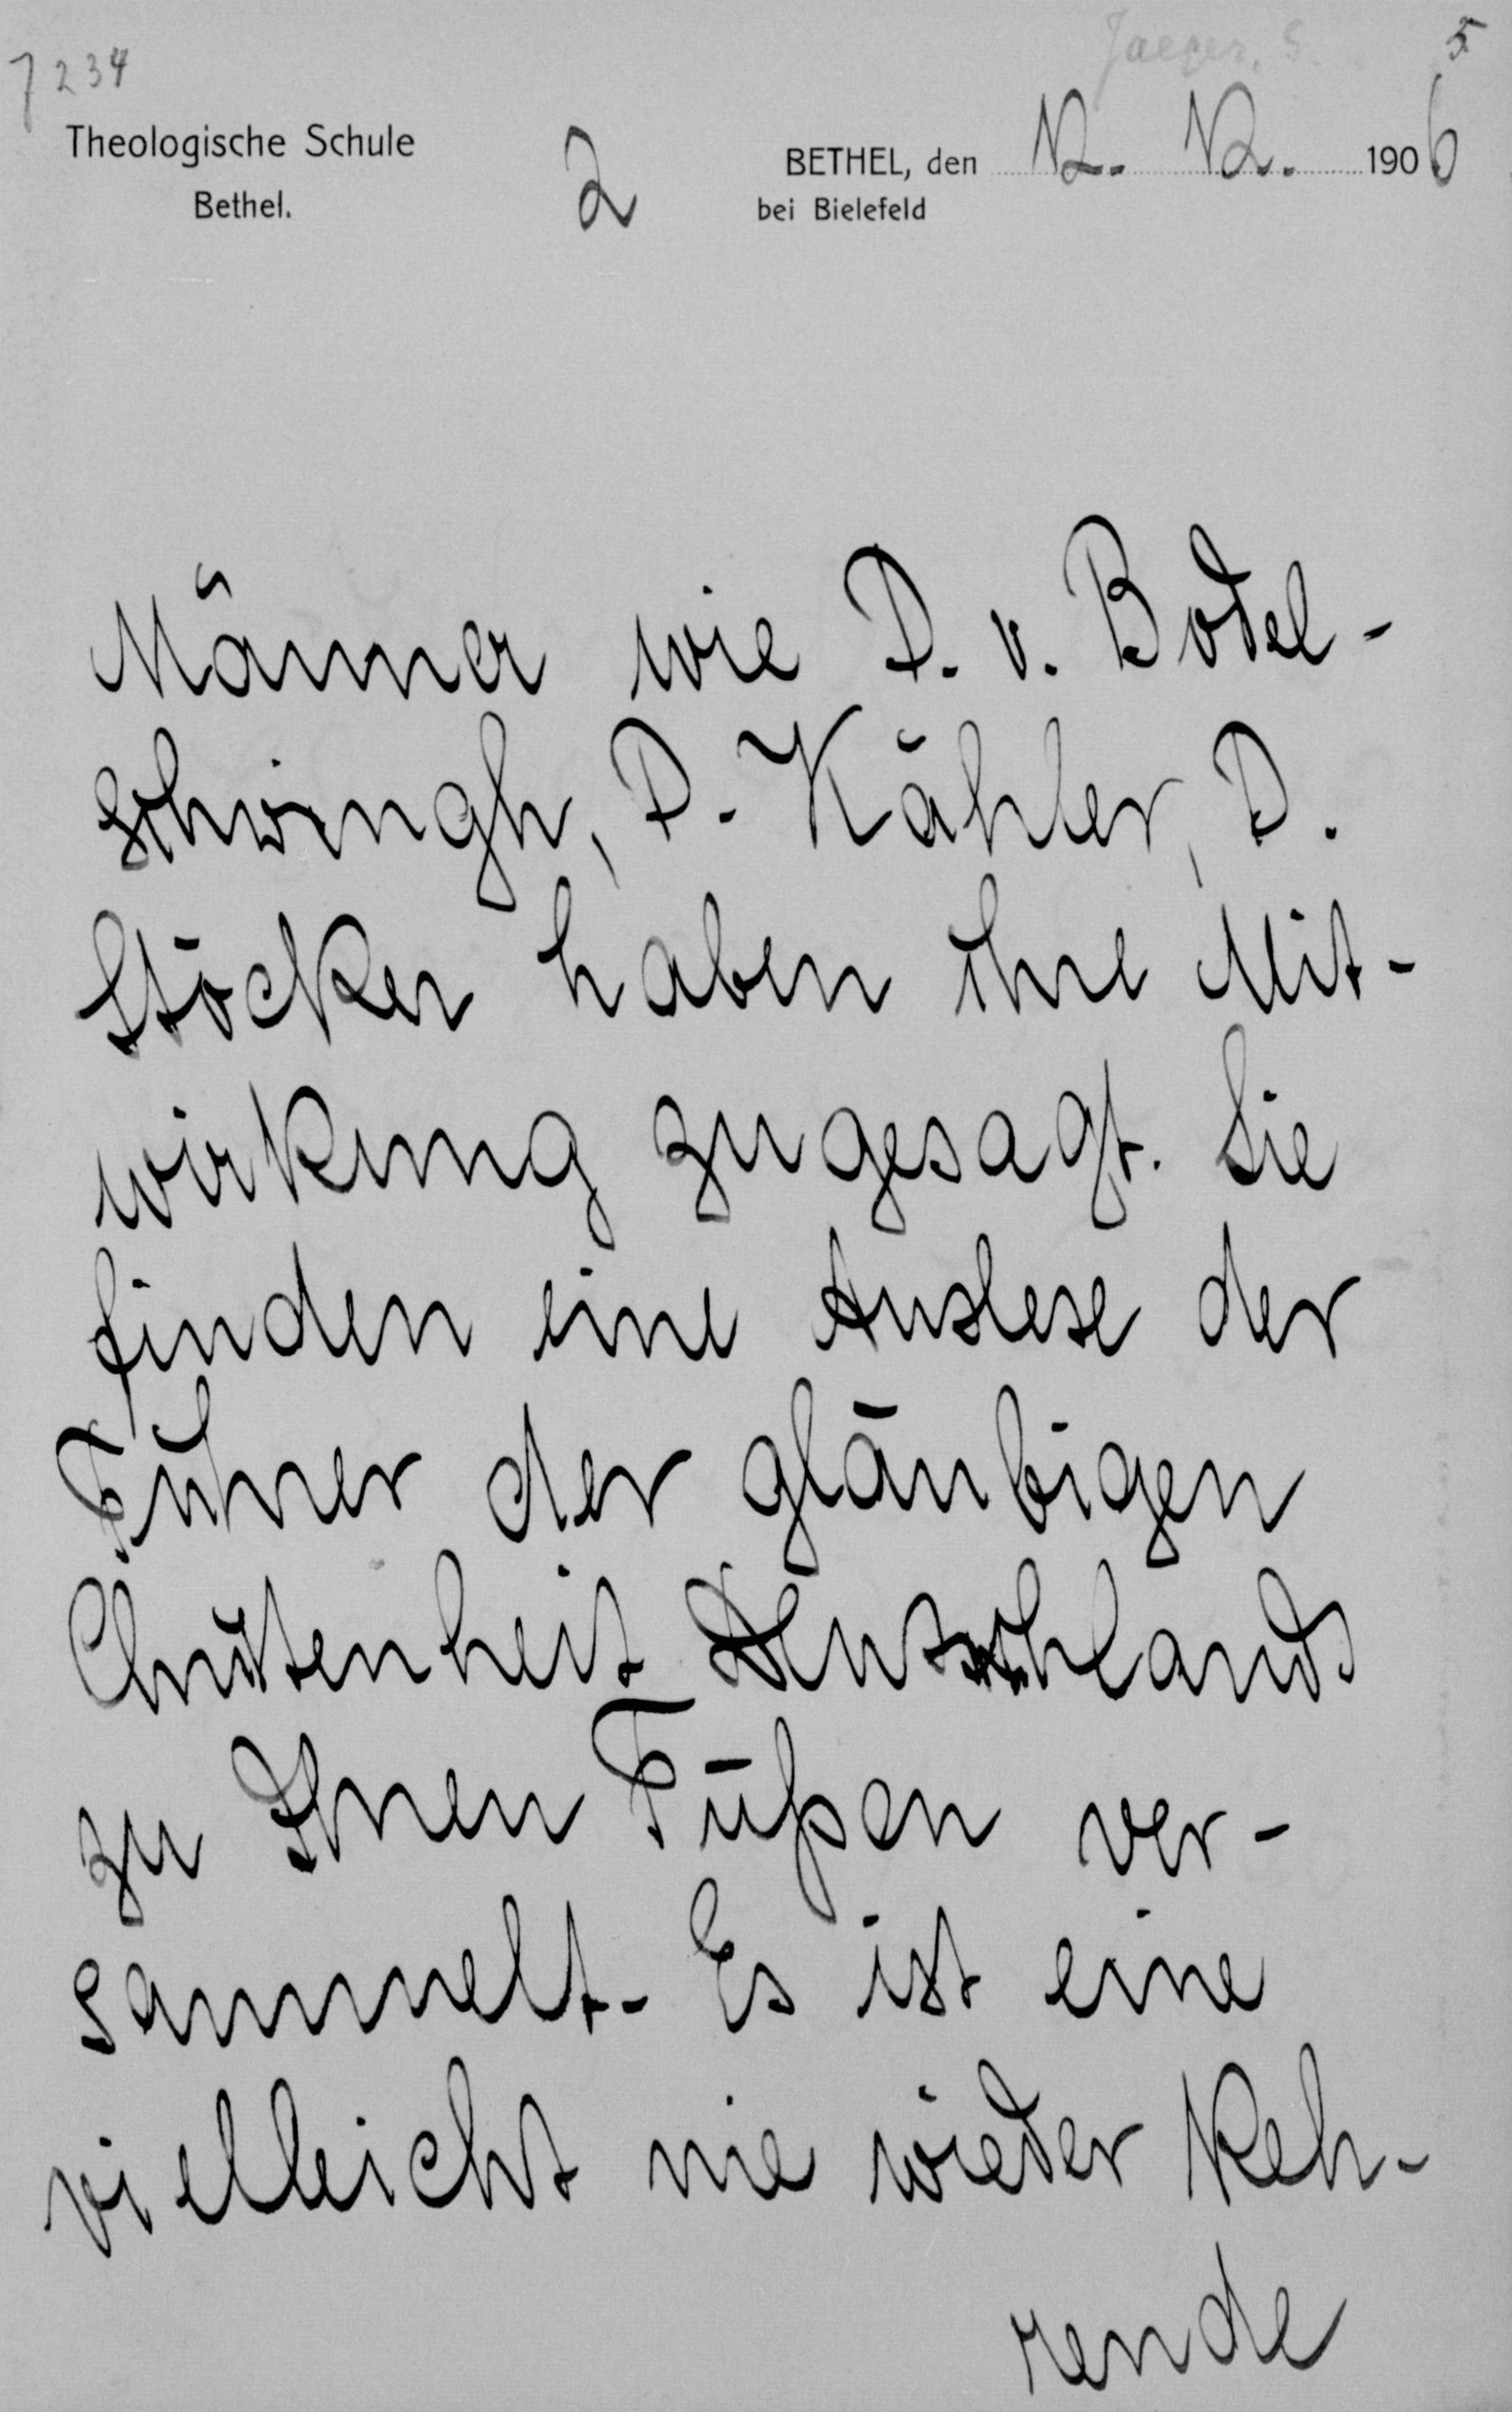 Jaeger, S. 5
7234
Theologische Schule
Bethel.
2
BETHEL, den 12. 12. 1906
bei Bielefeld
Männer wie D. v. Bodel-
schwingh, D. Kähler, D.
Stöcker haben ihre Mit-
wirkung zugesagt. Sie
finden eine Auslese der
Führer der gläubigen
Christenheit Deutschlands
zu Ihren Füßen ver-
sammelt. Es ist eine
vielleicht nie wieder keh-
rende